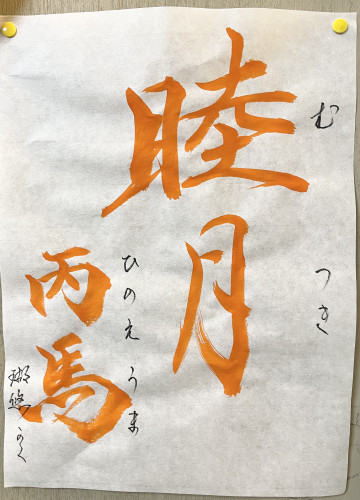 むつき
睦月
ひのえうま
丙馬